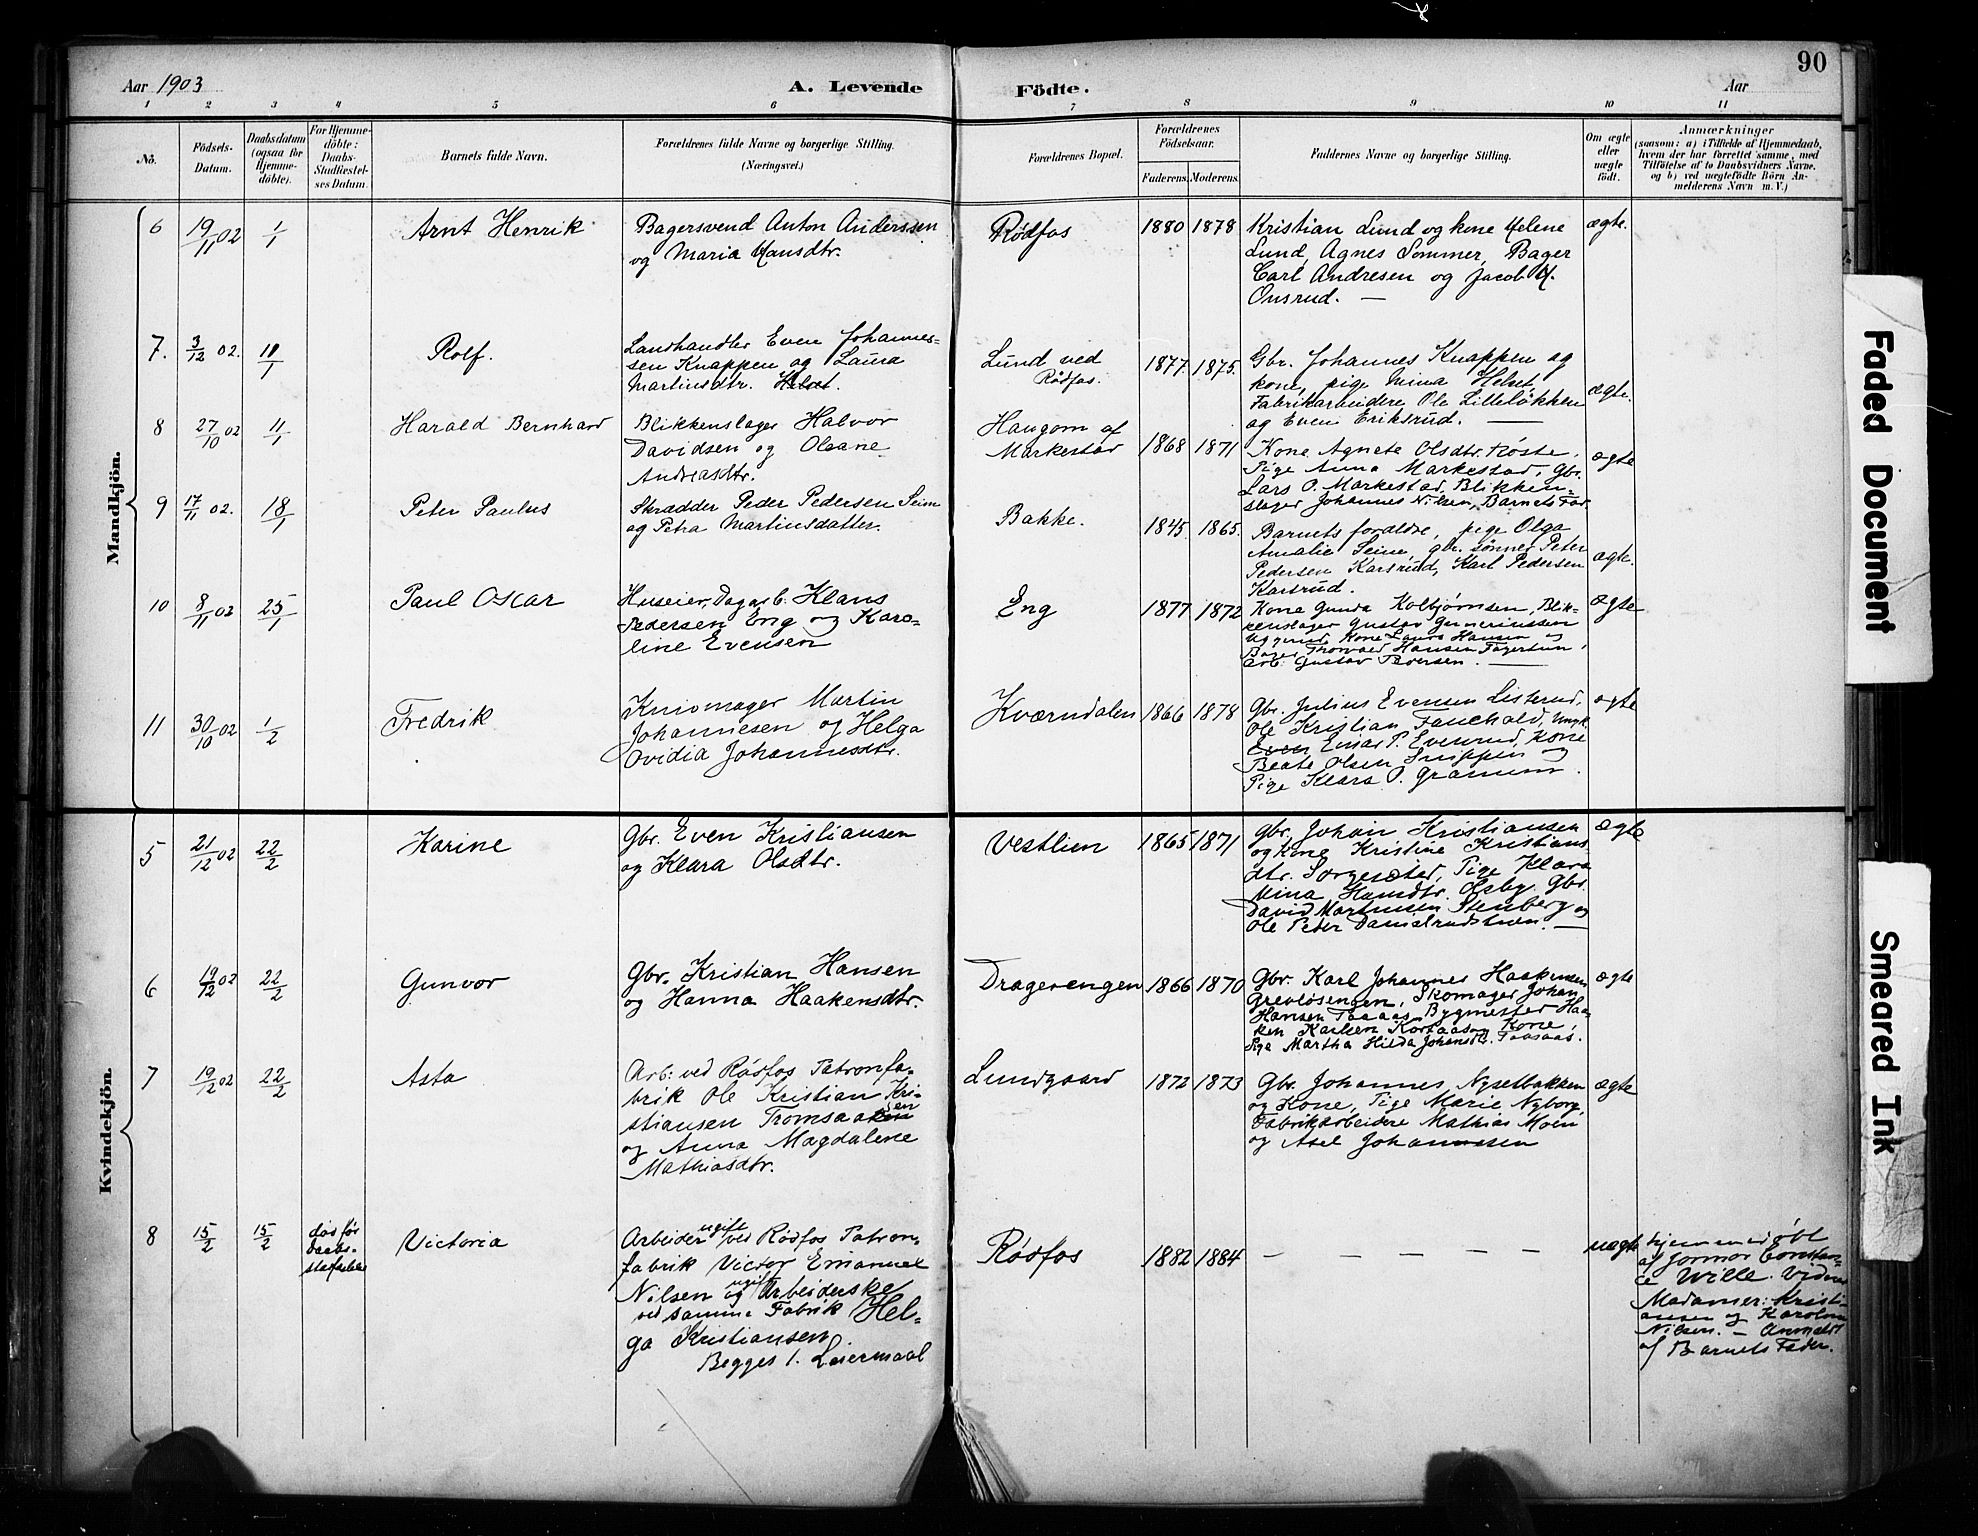 90
Aar 1903
A. Levende
Födte.
Aar
1 2 3 4 5 6 7 8 9 10 11
No.
Födsels-
Datum.
Daabsdatum
(ogsaa for
Hjemme-
döbte).
For Hjemme-
döbte:
Daabs-
Stadfæstel-
ses Datum.
Barnets fulde Navn.
Forældrenes fulde Navne og borgerlige Stilling.
(Næringsvei.)
Forældrenes Bopæl.
Forældrenes
Födselsaar.
Faderens. Moderens.
Faddernes Navne og borgerlige Stilling.
Om ægte
eller
uægte
födt.
Anmærkninger
(saasom: a) i Tilfælde af Hjemmedaab,
hvem der har forrettet samme, med
Tilföielse af to Daabsvidners Navne,
og b) ved uægtefödte Börn An-
melderens Navn m. V.)
Mandkjön.
6
19/11 02
1/1
Arnt Henrik
Bagersvend Anton Anderssen
og Maria Hansdtr.
Rødfos
1880 1878
Kristian Lund og kone Helene
Lund, Agnes Sommer, Bager
Carl Andresen og Jacob H.
Onsrud. —
ægte.
7.
3/12 02.
11/1
Rolf.
Landhandler Even Johannes-
sen Knappen og Laura
Martinsdtr. Helset.
Lund ved
Rødfos.
1877. 1875.
Gbr. Johannes Knappen og
kone, pige Mina Helset,
Fabrikarbeidere Ole Lilleløkken
og Even Eriksrud. —
ægte.
8
27/10 02
11/1
Harald Bernhard
Blikkenslager Halvor
Davidsen og Oleane
Andreasdtr.
Haugom af
Markestad
1868 1871
Kone Agnete Olsdtr. Røste,
Pige Anna Markestad, Gbr.
Lars O. Markestad, Blikken-
slager Johannes Nilsen, Barnets Far.
ægte
9
17/11 02.
18/1
Peter Paulus
Skrædder Peder Pedersen Seim
og Petra Martinsdatter.
Bakke.
1845. 1865.
Barnets forældre, pige Olga
Amalie Seine, gbr. sønner Peter
Pedersen Karsrud, Karl Pedersen
Karsrud.
ægte.
10
8/11 02
25/1
Paul Oskar
Huseier, Dagarb. Klaus
Pedersen Eng og Karo-
line Evensen
Eng
1877 1872
Kone Gunda Kolbjørnsen, Blik-
kenslager Gustav
Kone Laura Hansen og
Bager Thorvald Hansen Fagertun,
Arb. Gustav Pedersen. —
ægte
11
30/10 02
1/2
Fredrik
Knivmager Martin
Johannesen og Helga
Ovidia Johannesdtr.
Kværndalen
1866 1878
Gbr. Julius Evensen Listerud,
Ole Kristian Fauchald, Ungk.
Even Einar P. Evenrud, Kone
Beate Olsen Snippen og
Pige Klara O. Gramum.
ægte
Kvindekjön.
5
21/12 02
22/2
Karine
Gbr. Even Kristiansen
og Klara Olsdtr.
Vestlien
1865 1871
Gbr. Johan Kristiansen
og Kone Kristine Kristians-
dtr. Sorgesæter, Pige Klara
Mina Hansdtr. Olsby. Gbr.
David Martinsen Stenberg og
Ole Peder Danielrudstuen. —
ægte
6
19/12 02
22/2
Gunvor
Gbr. Kristian Hansen
og Hanna Haakensdtr.
Dragerengen
1866 1870
Gbr. Karl Johannes Haakensen
Grevløsengen, Skomager Johan
Hansen Taaaas, Bygmester Haa-
ken Karlsen Korsaas og Kone,
Pige Martha Hilda Johansdtr. Taasaas.
ægte
7
19/2 02
22/2
Asta
Arb: ved Rødfos Patronfa-
brik Ole Kristian Kri-
stiansen Tromsaaken
og Anna Magdalene
Mathiasdtr.
Lundgaard
1872 1873
Gbr. Johannes Nysetbakken
og Kone, Pige Marie Nyborg,
Fabrikarbeidere Mathias Moen
og Axel Johannessen
ægte
8
15/2
15/2
død før
Daabs-
stadfæstelse
Victoria
Arbeider ugift ved Rødfos Patron-
fabrik Victor Emanuel
Nilsen og ugift Arbeiderske
ved samme Fabrik Hel-
ga Kristiansen.
Begges 1. Leiermaal
Rødfos
1882 1884
— — — — — —
uægte
hjemmedøbt
af Jormor Constan-
ce Wille. Vidner
Madamer: Kristi-
ansen og Karoline
Nilsen. — Anmeldt
af Barnets Fader.
Faded Document
Smeared Ink